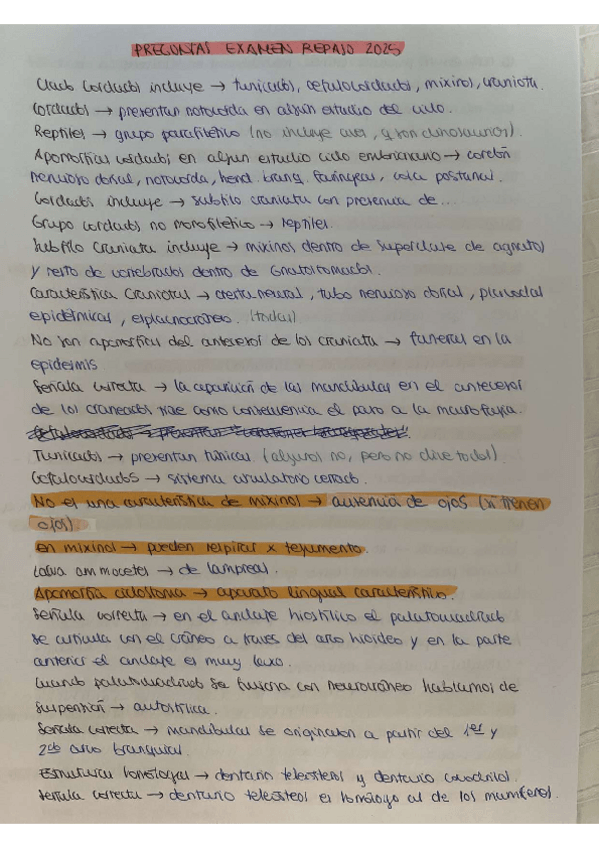 PREGUNTAS EXAMEN REPASO 2025
Clado Cordados incluye → tunicados, cefalocordados, mixinos, craniata.
Cordados → presentan notocorda en algún estudio del ciclo.
Reptiles → grupo parafilético (no incluye aves, q son dinosaurios).
Apomorfias cordados en algún estudio ciclo embrionario → cordón
nervioso dorsal, notocorda, hend. branq. faríngeas, cola postanal.
Cordados incluye → subfilo craniata con presencia de...
Grupo cordados no monofilético → reptiles.
Subfilo Craniata incluye → mixinos dentro de superclase de agnatos
y resto de vertebrados dentro de Gnatostomados.
Característica Craniotas → cresta neural, tubo nervioso dorsal, placodas
epidérmicas, esplacnocráneo. (todas)
No son apomorfias del ancestro de los craniata → faneras en la
epidermis.
Señala correcta → la aparición de las mandíbulas en el ancestro
de los craneados trae como consecuencia el paso a la macrofagia.
Tunicados → presentan túnica (algunos no, pero no dice todos).
Cefalocordados → sistema circulatorio cerrado.
No es una característica de mixinos → ausencia de ojos (si tienen
ojos).
en mixinos → pueden respirar x tegumento.
Larva ammocetes → de lampreas.
Apomorfia ciclostoma → aparato lingual característico.
Señala correcta → en el anclaje hiostílico el palatocuadrado
se articula con el cráneo a través del arco hioideo y en la parte
anterior el anclaje es muy laxo.
Cuando palatocuadrado se fusiona con neurocráneo hablamos de
suspensión → autostílica.
Señala correcta → mandíbulas se originaron a partir del 1er y
2do arco branquial.
Estructuras homólogas → dentario teleósteos y dentario cocodrilos.
Señala correcta → dentario teleósteos es homólogo al de los mamíferos.